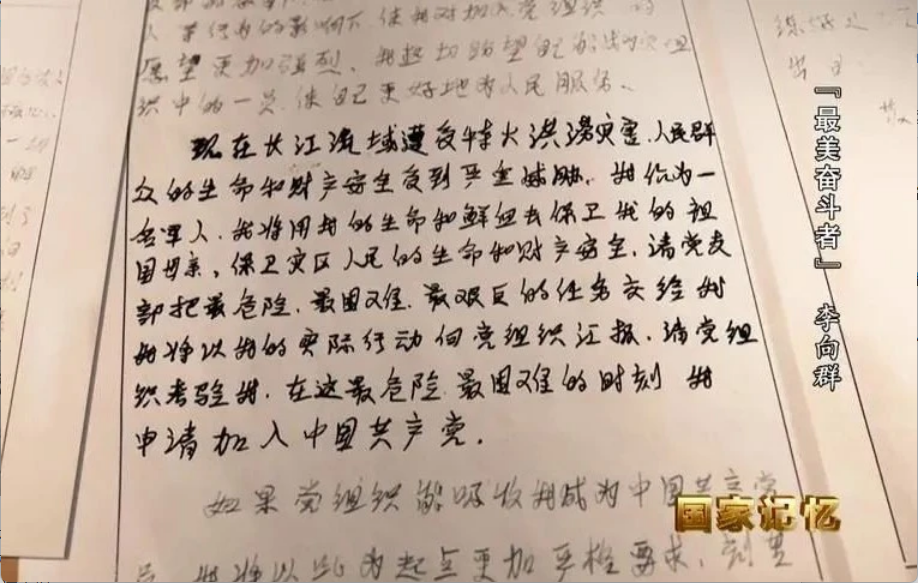 人 的影响下 使我对加入党组织的
愿望更加强烈、我迫切盼望自己能成为党组
织中的一员、使自己更好地为人民服务。
现在长江流域遭受特大洪涝灾害、人民群
众的生命和财产安全受到严重威胁、我作为一
名军人、我将用我的生命和鲜血去保卫我的祖
国母亲、保卫灾区人民的生命和财产安全、请党支
部把最危险、最困难、最艰巨的任务交给我
我将以我的实际行动向党组织汇报、请党组
织考验我、在这最危险、最困难的时刻 我
申请加入中国共产党。
如果党组织能吸收我成为中国共产党
员 我将以此为起点更加严格要求、刻苦
『最美奋斗者』 李向群
国家记忆